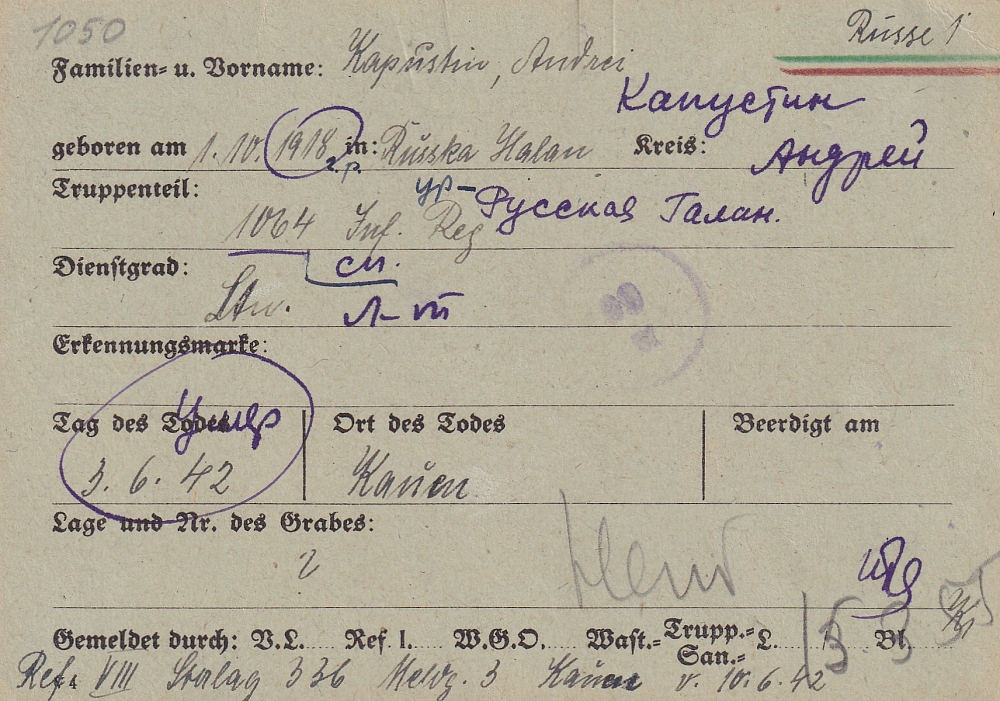 1050
Russe 1
Familien- u. Vorname: Kapustin, Andrei
Капустин
geboren am 1.10.1918 in: Russka Halan Kreis:
г.р.
Андрей
Truppenteil:
ур- Русская Галан.
1064 Inf. Reg
сп.
Dienstgrad:
Ltn. л-т
Erkennungsmarke:
Tag des Todes Ort des Todes Beerdigt am
умер
3.6.42 Kauen
Lage und Nr. des Grabes:
?
Gemeldet durch: V.L. Ref. I. W.G.O. Wast.- Trupp.- San.- L. Bl.
Ref. VIII Stalag 336 Meldg. 3 Kauen v. 10.6.42